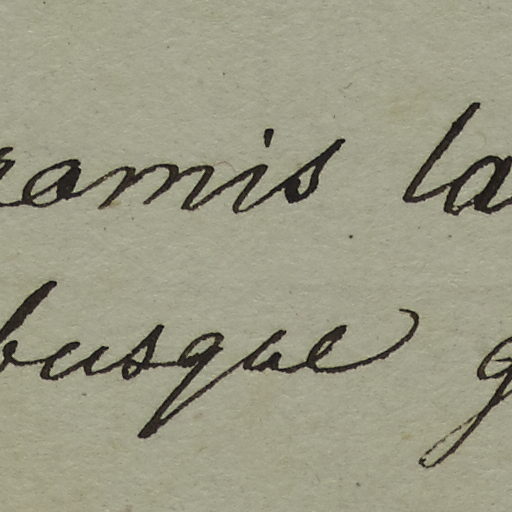 ramis la
busque g